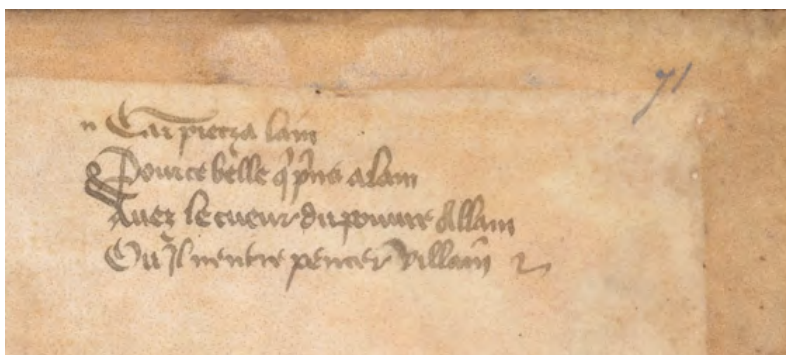 71
Car pietza lam
Pource belle q̃ p̃ns a lam
Avez le cueur du pouvre Allain
Ou Il nentre pencer villain